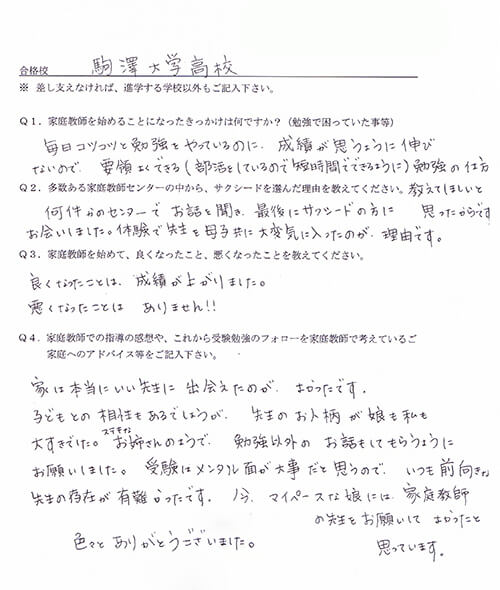 合格校 駒澤大学高校
※ 差し支えなければ、進学する学校以外もご記入下さい。
Q1.家庭教師を始めることになったきっかけは何ですか？(勉強で困っていた事等)
毎日コツコツと勉強をやっているのに、成績が思うように伸び
ないので、要領よくできる(部活をしているので短時間でできるように)勉強の仕方
Q2.多数ある家庭教師センターの中から、サクシードを選んだ理由を教えてください。教えてほしいと
何件かのセンターでお話を聞き、最後にサクシードの方に 思ったからです
お会いしました。体験で先生を母子共に大変気に入ったのが、理由です。
Q3.家庭教師を始めて、良くなったこと、悪くなったことを教えてください。
良くなったことは、成績が上がりました。
悪くなったことは ありません!!
Q4.家庭教師での指導の感想や、これから受験勉強のフォローを家庭教師で考えているご
家庭へのアドバイス等をご記入下さい。
家は本当にいい先生に出会えたのが、よかったです。
子どもとの相性もあるでしょうが、先生のお人柄が娘も私も
大すきでした。ステキなお姉さんのようで、勉強以外のお話もしてもらうように
お願いしました。受験はメンタル面が大事だと思うので、いつも前向きな
先生の存在が有難かったです。今、マイペースな娘には、家庭教師
の先生をお願いして よかったと
色々とありがとうございました。 思っています。